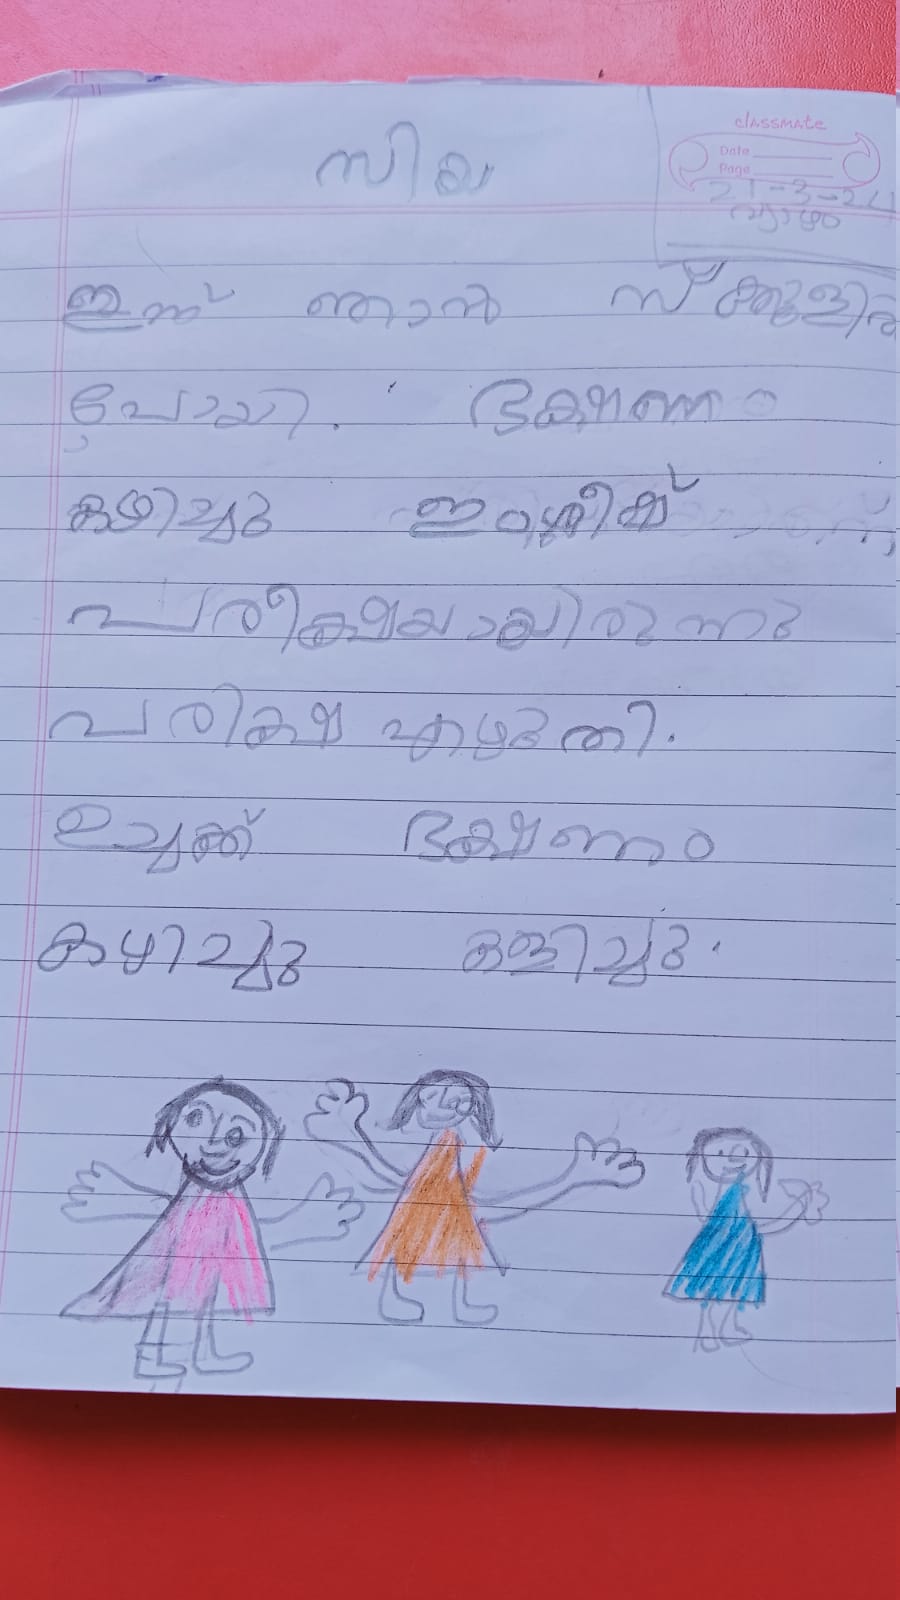 സിയ
classmate
Date
Page
21-3-24
വ്യാഴം
ഇന്ന് ഞാൻ സ്ക്കൂളിൽ
പോയി. ഭക്ഷണം
കഴിച്ചു
പരീക്ഷയായിരുന്നു
പരിക്ഷ എഴുതി.
ഉച്ചക്ക് ഭക്ഷണം
കഴിച്ചു കളിച്ചു.